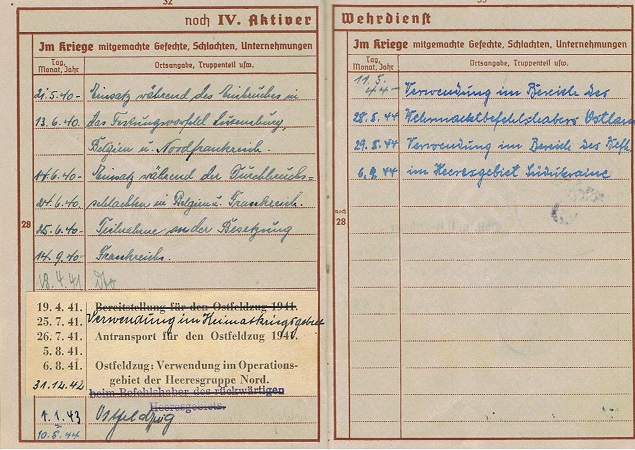 32
noch IV. Aktiver
Im Kriege mitgemachte Gefechte, Schlachten, Unternehmungen
Tag, Monat, Jahr
Ortsangabe, Truppenteil usw.
21.5.40- Einsatz während des Einbruches in
13.6.40- das Festungsvorfeld Luxemburg,
Belgien u. Nordfrankreich.
14.6.40- Einsatz während der Durchbruchs=
24.6.40- schlachten in Belgien u. Frankreich.
28
25.6.40- Teilnahme an der Besetzung
14.9.40- Frankreichs.
18.4.41
19.4.41. Bereitstellung für den Ostfeldzug 1941.
25.7.41. Verwendung im Heimatkriegsgebiet
26.7.41. Antransport für den Ostfeldzug 1941.
5.8.41.
6.8.41. Ostfeldzug: Verwendung im Operations-
gebiet der Heeresgruppe Nord.
31.12.42
beim Befehlshaber des rückwärtigen
Heeresgebiets.
1.1.43 Ostfeldzug
10.5.44
33
Wehrdienst
Im Kriege mitgemachte Gefechte, Schlachten, Unternehmungen
Tag, Monat, Jahr
Ortsangabe, Truppenteil usw.
11.5.
44- Verwendung im Bereich des
28.8.44 Wehrmachtbefehlshabers Ostland
29.8.44 Verwendung im Bereich des
6.9.44 im Heeresgebiet Südukraine
noch
28